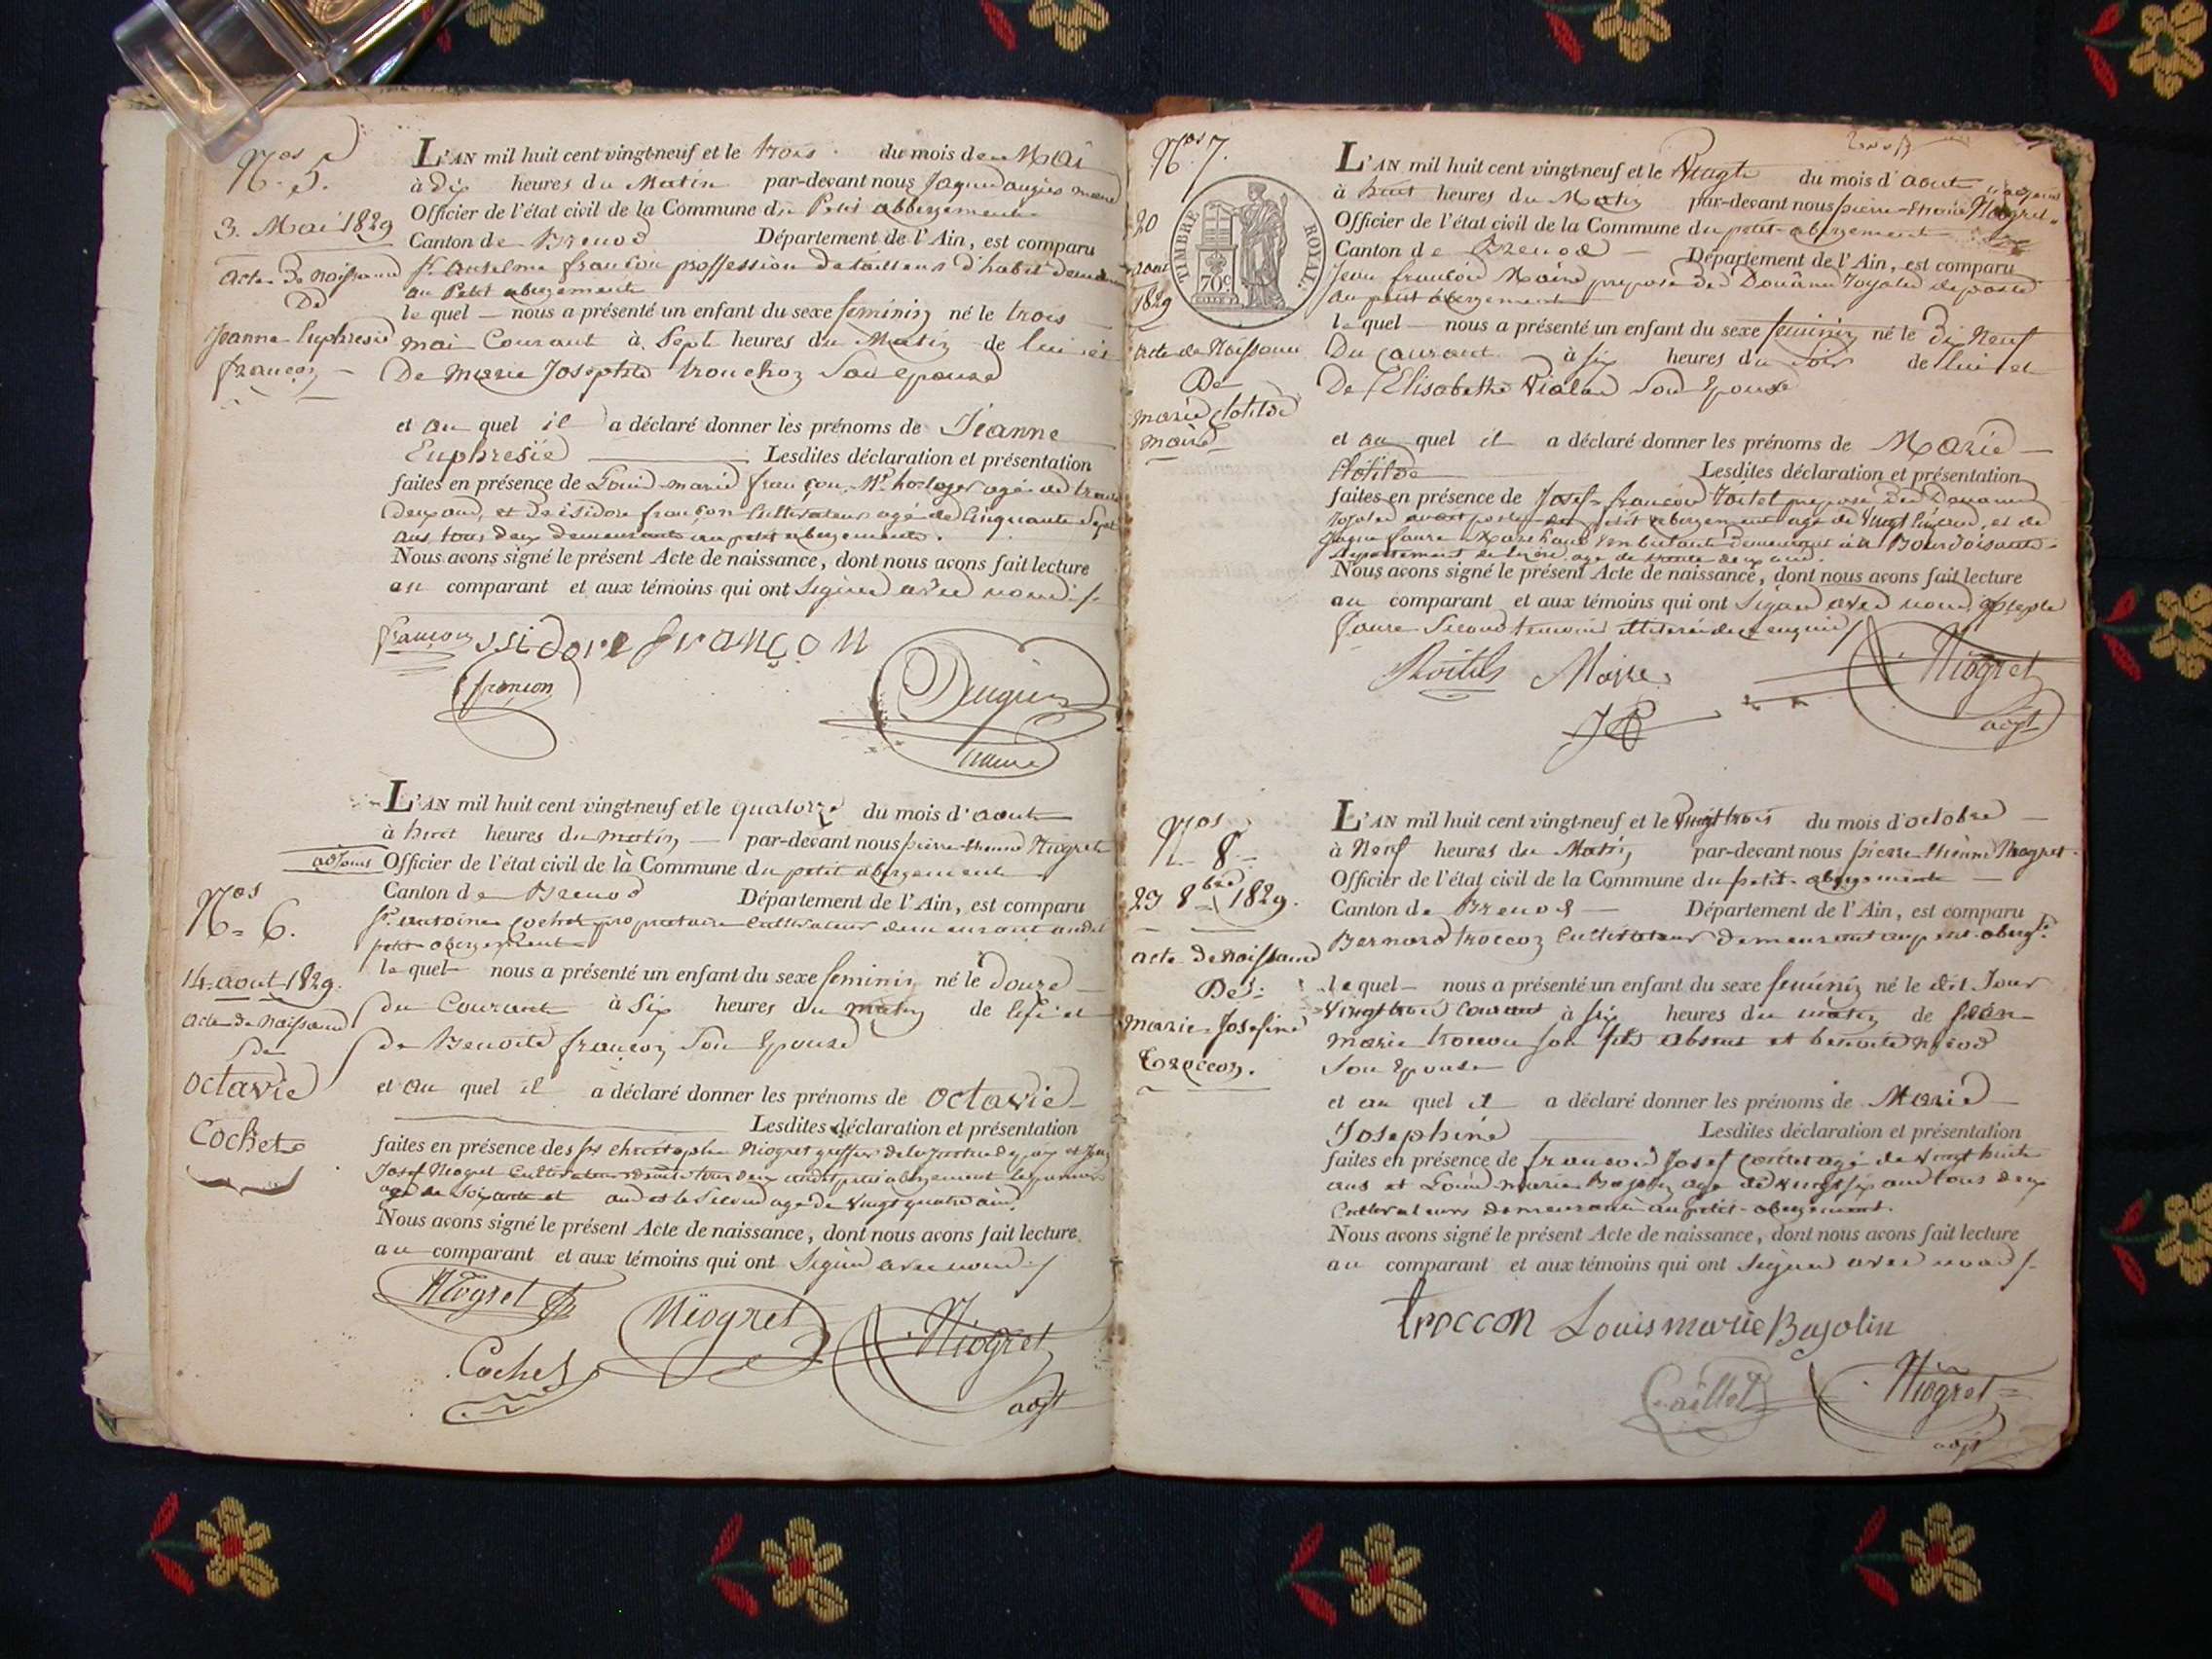 Nos 5.
3. Mai 1829
Acte de Naissance
De
Jeanne Euphresie
françon
L'AN mil huit cent vingt-neuf et le trois du mois de Mai
à dix heures du Matin par-devant nous Jaque augier maire
Officier de l'état civil de la Commune du Petit abbergement
Canton de Brenod Département de l'Ain, est comparu
sr. Anselme françon proffession de tailleur d'habit demeurant
au Petit abergement
le quel nous a présenté un enfant du sexe feminin né le trois
mai Courant à Sept heures du Matin de lui et
De Marie Josephte trouchon Son epouse
et au quel il a déclaré donner les prénoms de Jeanne
Euphresie Lesdites déclaration et présentation
faites en présence de Louis marie françon Md horloger agé de trente
deux ans, et de isidore françon Cultivateur agé de Cinquante Sept
ans tous deux demeurants au petit abergement.
Nous avons signé le présent Acte de naissance, dont nous avons fait lecture
au comparant et aux témoins qui ont Signés avec nous
françon issidore françon
françon
augier
maire
Nos 6.
14 aout 1829.
Acte de Naissance
de
octavie
Cochet
L'AN mil huit cent vingt-neuf et le quatorze du mois d'aout
à huit heures du matin par-devant nous pierre-Etienne Niogret
adjoint Officier de l'état civil de la Commune du petit abergement
Canton de Brenod Département de l'Ain, est comparu
sr. antoine Cochet propriétaire Cultivateur demeurant audit
petit abergement
le quel nous a présenté un enfant du sexe feminin né le douze
du Courant à Six heures du matin de lui et
de Benoite françon Son Epouse
et au quel il a déclaré donner les prénoms de octavie
Lesdites déclaration et présentation
faites en présence des srs christophe Niogret greffier de la Justice de paix et
Josef Niogret Cultivateur tous deux audit petit abergement le premier
agé de Soixante et ans et le Second agé de Vingt quatre ans.
Nous avons signé le présent Acte de naissance, dont nous avons fait lecture
au comparant et aux témoins qui ont Signés avec nous
Niogret
Niogret Niogret
Cochet adjt
Nos 7.
20
aout
1829
TIMBRE ROYAL.
70c
Acte de Naissance
De
marie Clotilde
maire
L'AN mil huit cent vingt-neuf et le Vingt du mois d'aout
à huit heures du Matin par-devant nous pierre-Etienne Niogret adjoint
Officier de l'état civil de la Commune du petit abergement
Canton de Brenod Département de l'Ain, est comparu
Jean françois Maire preposé des Douanes royales de poste
au petit abergement
le quel nous a présenté un enfant du sexe feminin né le dix Neuf
Du Courant à six heures du Soir de lui et
De Elisabethe Vialan Son Epouse
et au quel il a déclaré donner les prénoms de Marie
Clotilde Lesdites déclaration et présentation
faites en présence de Josef-françois preposé des Douanes
royales au petit abergement agé de Vingt ans, et de
Jaque faure Marchand embulant demeurant à Bourdoisants
département de agé de trente deux ans.
Nous avons signé le présent Acte de naissance, dont nous avons fait lecture
au comparant et aux témoins qui ont Signés avec nous
faure Second temoin
Maire Niogret
adjt
Nos 8.
23 8bre 1829.
acte de Naissance
De
marie-Josefine
Troccon.
L'AN mil huit cent vingt-neuf et le Vingt trois du mois d'octobre
à Neuf heures du Matin par-devant nous pierre Etienne Niogret
Officier de l'état civil de la Commune du petit-abergement
Canton de Brenod Département de l'Ain, est comparu
Bernard troccon Cultivateur demeurant au petit-abergt.
le quel nous a présenté un enfant du sexe feminin né le dit Jour
Vingt trois Courant à six heures du matin de Jean
marie troccon son fils absent et benoite Nicod
Son Epouse
et au quel il a déclaré donner les prénoms de Marie
Josephine Lesdites déclaration et présentation
faites en présence de françois Josef agé de vingt huit
ans et Louis marie Bajolin agé de vingt six ans tous deux
Cultivateurs demeurants au petit-abergement.
Nous avons signé le présent Acte de naissance, dont nous avons fait lecture
au comparant et aux témoins qui ont Signés avec nous
troccon Louis marie Bajolin
Caillet Niogret
adjt